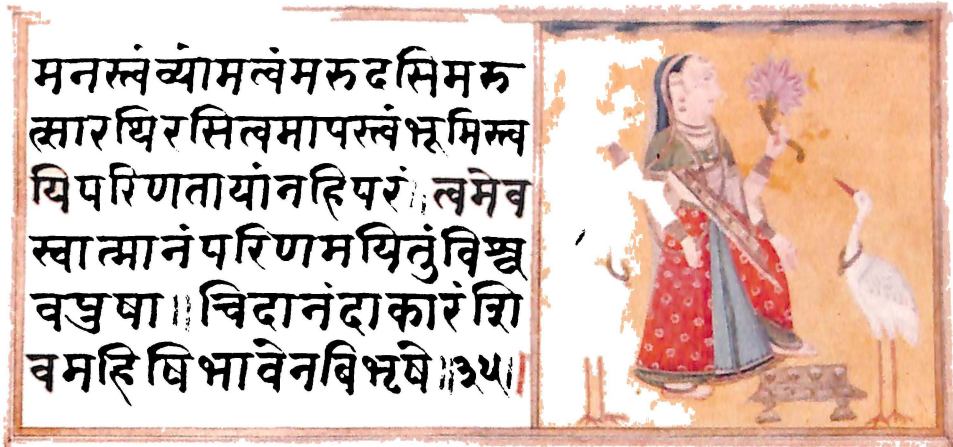 मनस्त्वंव्यांमत्वंमरुदसिमरु
त्सारथिरसित्वमापस्त्वंभूमिस्त्व
यिपरिणतायांनहिपरं॥त्वमेव
स्वात्मानंपरिणमयितुंविश्व
वपुषा॥चिदानंदाकारंशि
वमहिषिभावेनबिभृषे॥३५॥